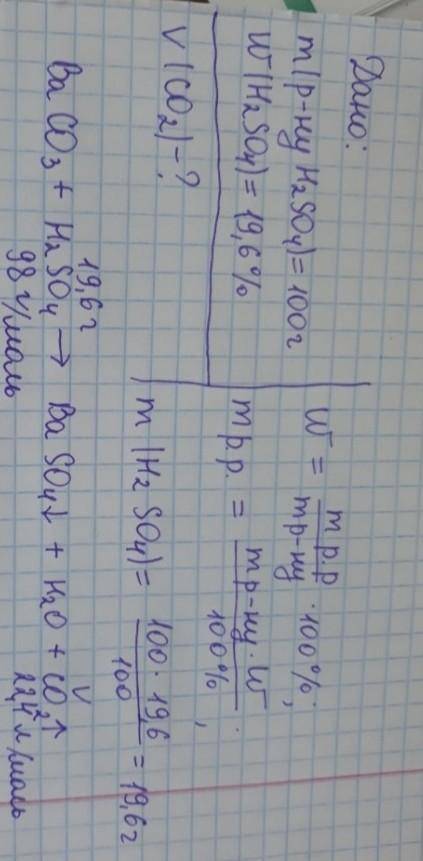 Дано:
m(р-ну H₂SO₄)=100г
W(H₂SO₄)=19,6%
V(CO₂)-?
W = m р.р / m р-ну · 100%;
m р.р. = m р-ну · W / 100%;
m(H₂SO₄)= 100 · 19,6 / 100 = 19,6г
19,6г V
BaCO₃ + H₂SO₄ → BaSO₄↓ + H₂O + CO₂↑
98 г/моль 22,4 л/моль